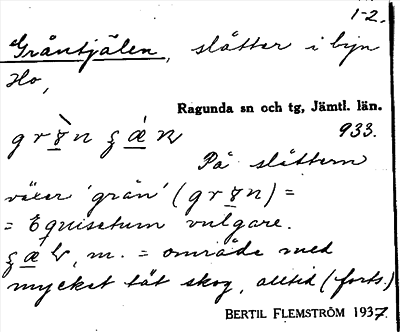 1-2.
Gråntjälen, slåtter i byn
Ho,
Ragunda sn och tg, Jämtl. län.
933.
På slåttern
växer 'grån' (grɤn) =
= Equisetum vulgare.
m. = område med
mycket tät skog, alltid (forts.)
BERTIL FLEMSTRÖM 1937.